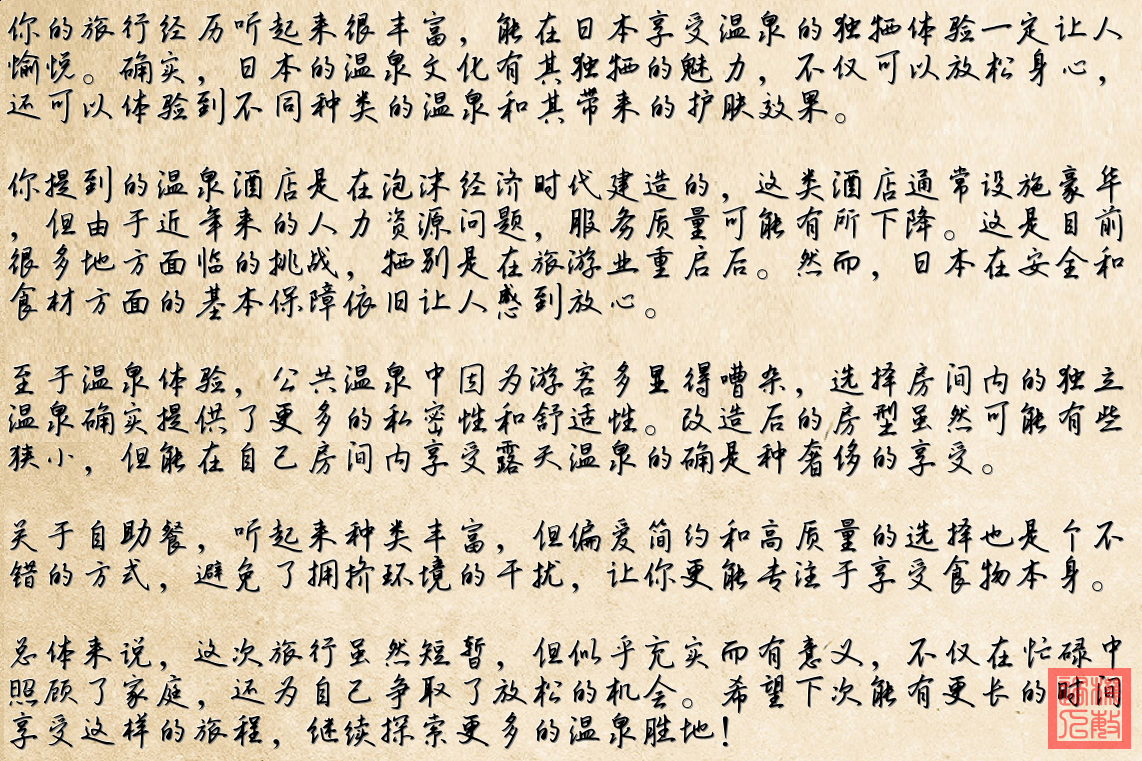 你的旅行经历听起来很丰富，能在日本享受温泉的独特体验一定让人
愉悦。确实，日本的温泉文化有其独特的魅力，不仅可以放松身心，
还可以体验到不同种类的温泉和其带来的护肤效果。
你提到的温泉酒店是在泡沫经济时代建造的，这类酒店通常设施豪华
，但由于近年来的人力资源问题，服务质量可能有所下降。这是目前
很多地方面临的挑战，特别是在旅游业重启后。然而，日本在安全和
食材方面的基本保障依旧让人感到放心。
至于温泉体验，公共温泉中因为游客多显得嘈杂，选择房间内的独立
温泉确实提供了更多的私密性和舒适性。改造后的房型虽然可能有些
狭小，但能在自己房间内享受露天温泉的确是种奢侈的享受。
关于自助餐，听起来种类丰富，但偏爱简约和高质量的选择也是个不
错的方式，避免了拥挤环境的干扰，让你更能专注于享受食物本身。
总体来说，这次旅行虽然短暂，但似乎充实而有意义，不仅在忙碌中
照顾了家庭，还为自己争取了放松的机会。希望下次能有更长的时间
享受这样的旅程，继续探索更多的温泉胜地！